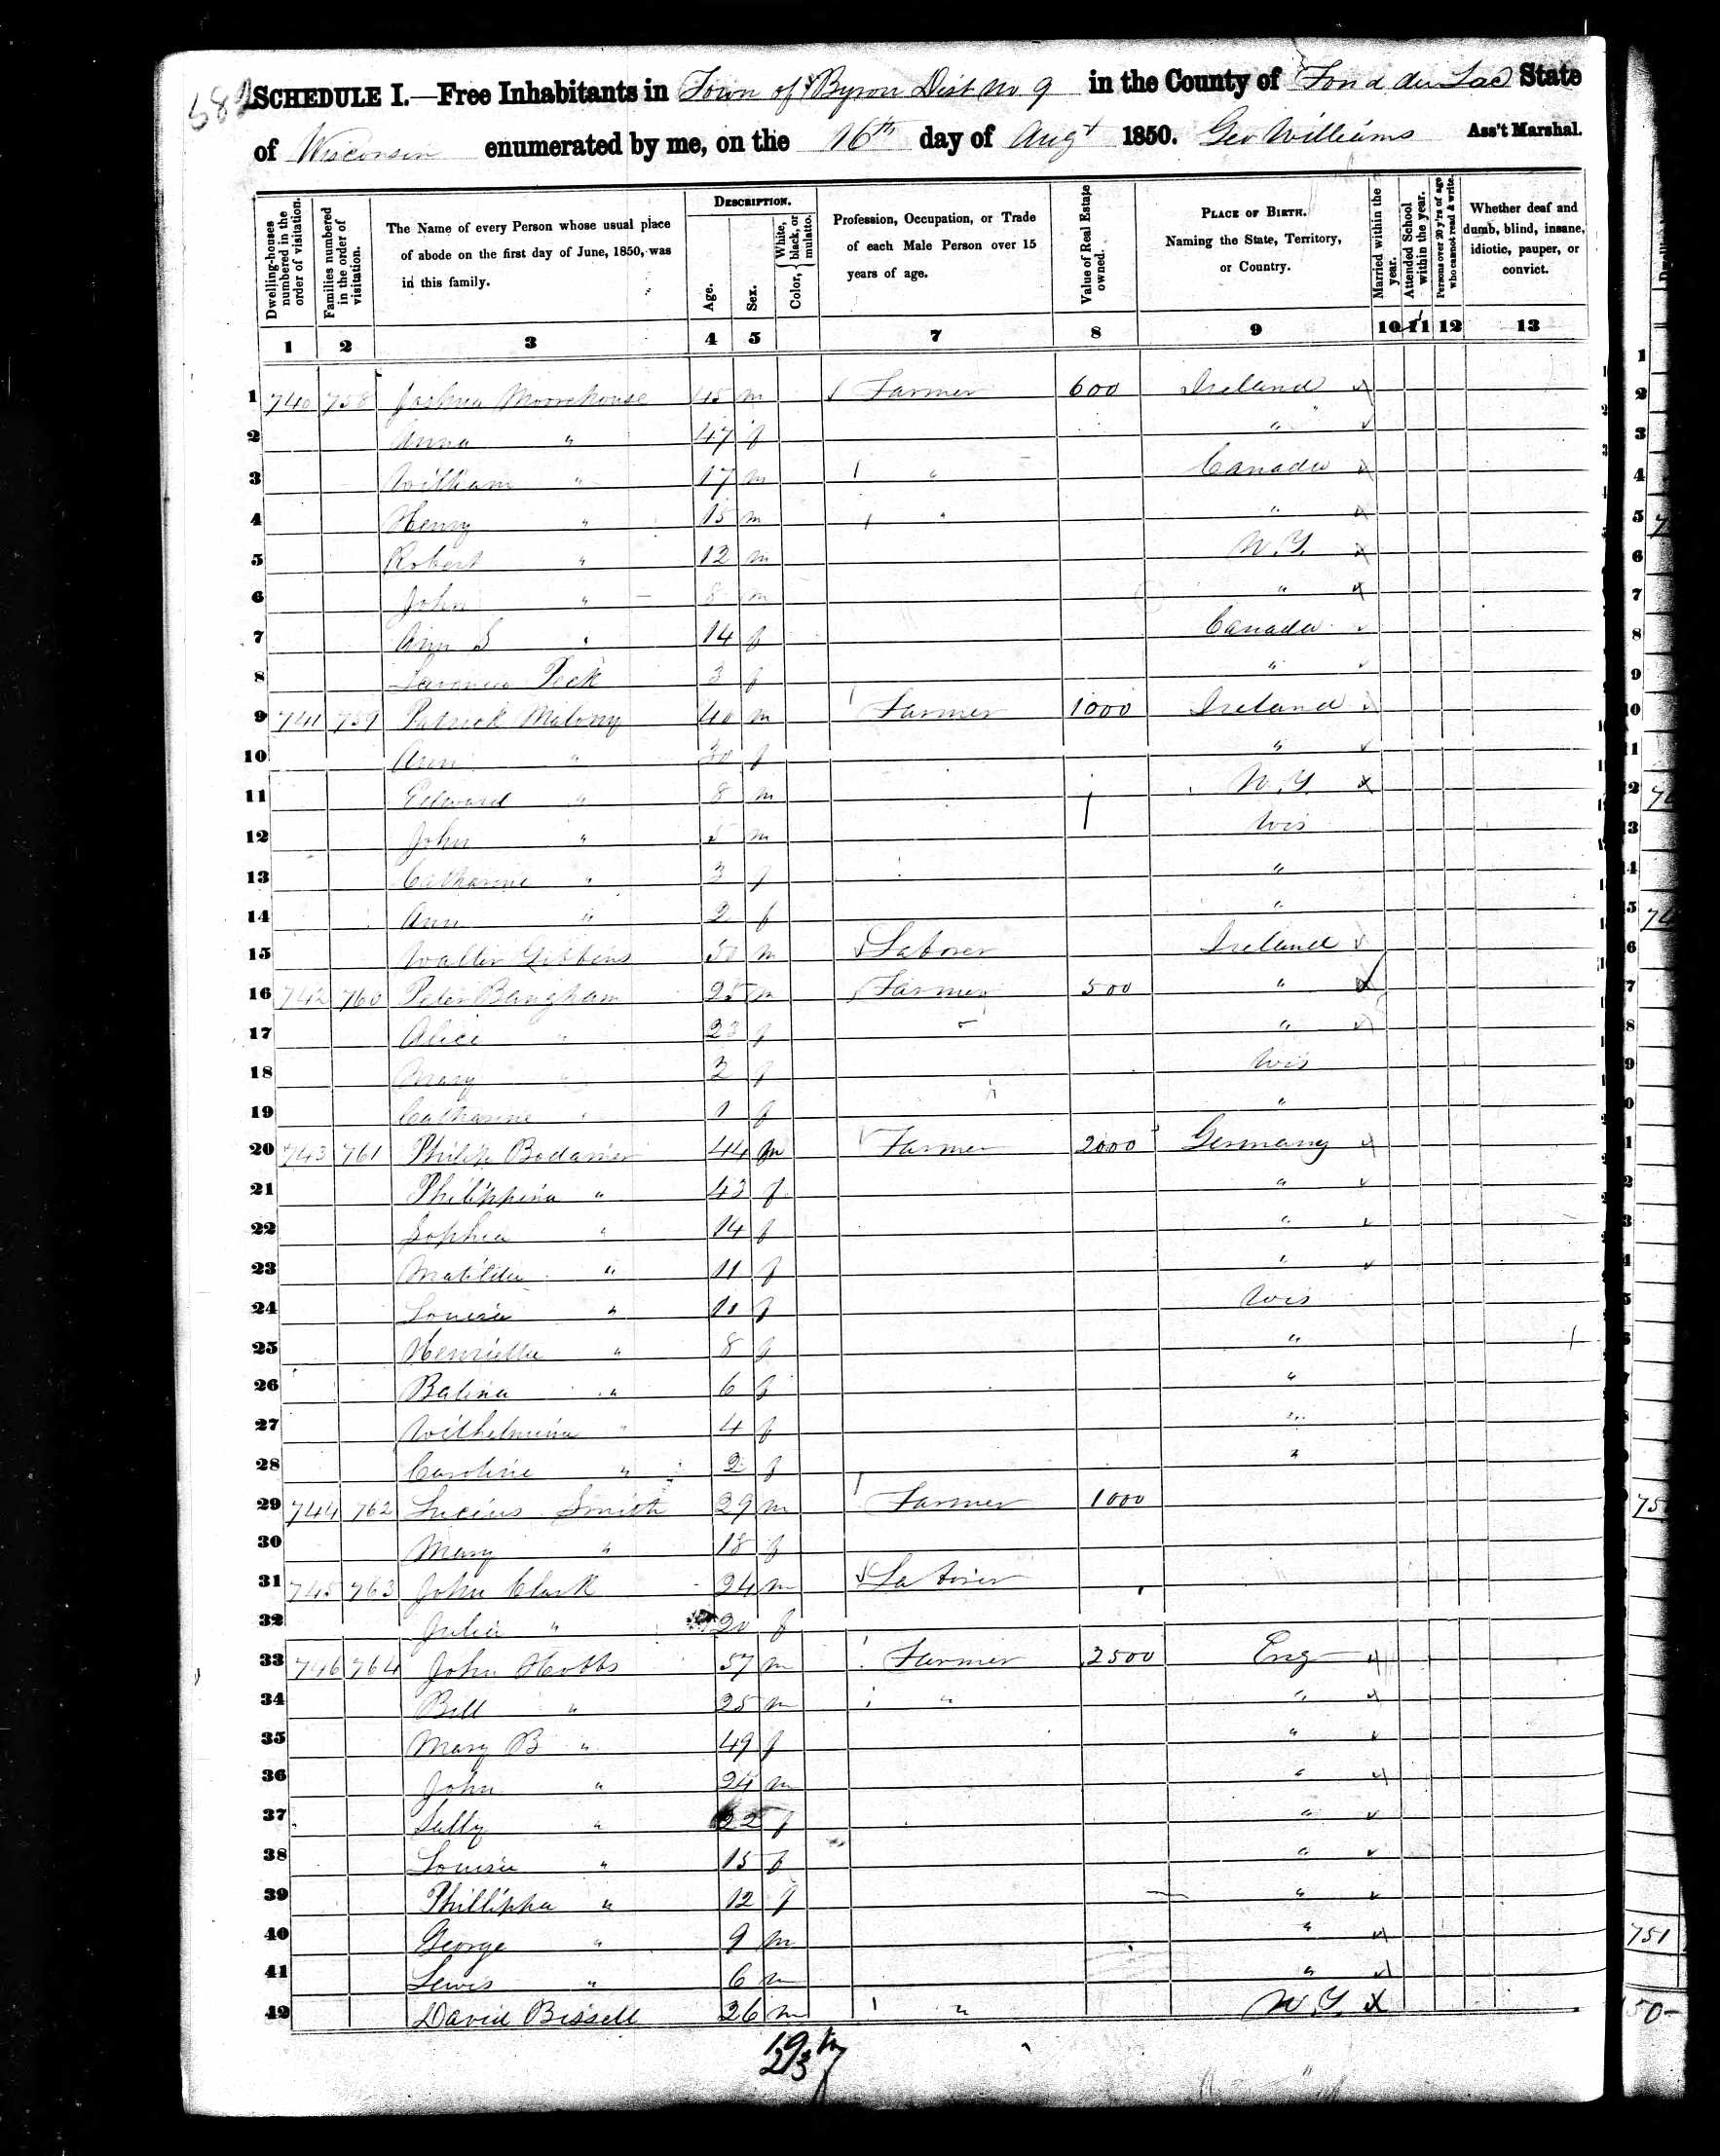 682
SCHEDULE I.—Free Inhabitants in Town of Byron Dist No 9 in the County of Fond du Lac State
of Wisconsin enumerated by me, on the 16th day of Augt 1850. Geo Williams Ass't Marshal.
Dwelling-houses numbered in the order of visitation.
Families numbered in the order of visitation.
The Name of every Person whose usual place of abode on the first day of June, 1850, was in this family.
DESCRIPTION.
Age.
Sex.
Color, { White, black, or mulatto.
Profession, Occupation, or Trade of each Male Person over 15 years of age.
Value of Real Estate owned.
PLACE OF BIRTH. Naming the State, Territory, or Country.
Married within the year.
Attended School within the year.
Persons over 20 y'rs of age who cannot read & write.
Whether deaf and dumb, blind, insane, idiotic, pauper, or convict.
1 2 3 4 5 7 8 9 10 11 12 13
1 740 758 Joshua Moorehouse 45 m Farmer 600 Ireland
2 Anna " 47 f "
3 William " 17 m " Canada
4 Henry " 15 m " "
5 Robert " 12 m N.Y.
6 John " 8 m "
7 Ann S " 14 f Canada
8 Peck 3 f "
9 741 759 Patrick Malony 40 m Farmer 1000 Ireland
10 Ann " 30 f "
11 Edward " 8 m N.Y.
12 John " 5 m Wis
13 Catharine " 3 f "
14 Ann " 2 f "
15 Walter Gibbins 50 m Laborer Ireland
16 742 760 Peter Bangham 25 m Farmer 500 "
17 Alice " 23 f "
18 Mary " 3 f Wis
19 Catharine " 1 f "
20 743 761 Philip Bodamer 44 m Farmer 2000 Germany
21 Philippina " 43 f "
22 Sophia " 14 f "
23 Matilda " 11 f "
24 Louisa " 10 f Wis
25 Henrietta " 8 f "
26 Balina " 6 f "
27 Wilhelmina " 4 f "
28 Caroline " 2 f "
29 744 762 Lucius Smith 29 m Farmer 1000
30 Mary " 18 f
31 745 763 John Clark 24 m Laborer
32 Julia " 20 f
33 746 764 John Hobbs 57 m Farmer 2500 Eng
34 Bill " 25 m " "
35 Mary B " 49 f "
36 John " 24 m "
37 Sally " 22 f "
38 Louisa " 15 f "
39 Phillippa " 12 f "
40 George " 9 m "
41 Lewis " 6 m "
42 David Bissell 26 m " N.Y.